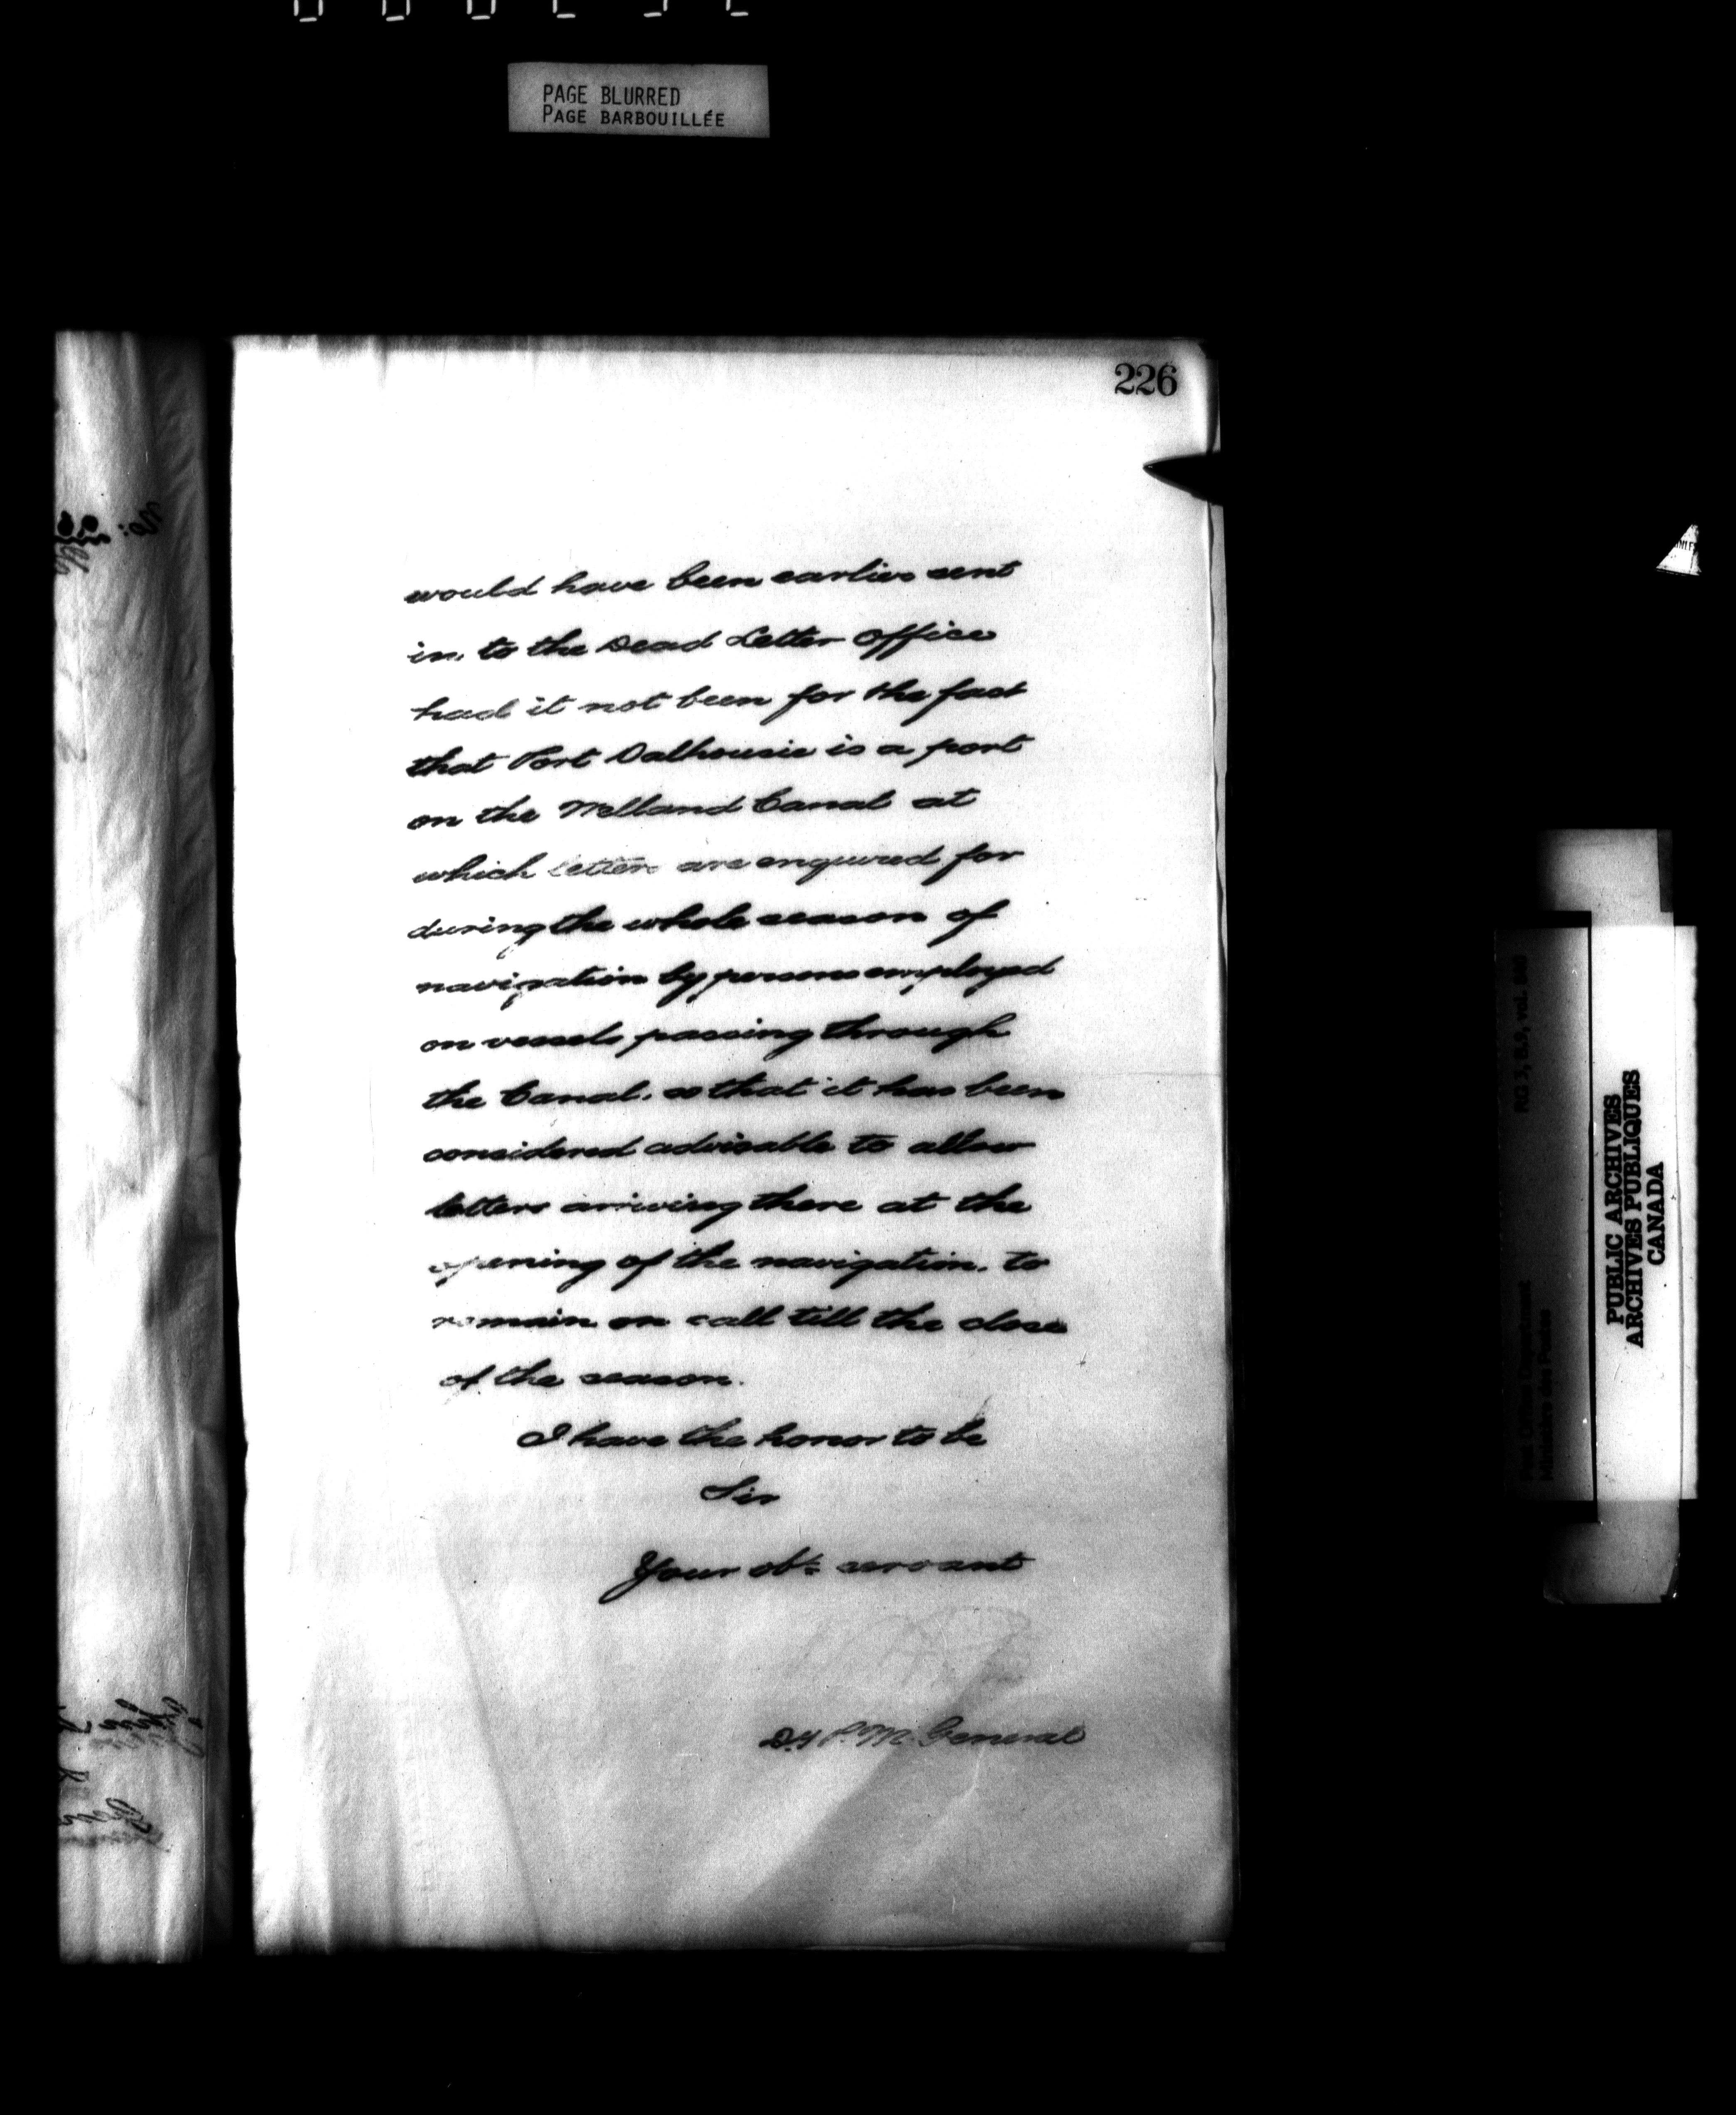 PAGE BLURRED
PAGE BARBOUILLÉE
226
would have been earlier sent
in, to the Dead Letter Office
had it not been for the fact
that Port Dalhousie is a port
on the Welland Canal at
which letters are enquired for
during the whole season of
navigation by persons employed
on vessels passing through
the Canal, so that it has been
considered advisable to allow
letters arriving there at the
opening of the navigation, to
remain on call till the close
of the season.
I have the honor to be
Sir
Your obt servant
Dy P. M. General
RG 3, B.9, vol.
Post Office Department
Ministère des Postes
PUBLIC ARCHIVES
ARCHIVES PUBLIQUES
CANADA